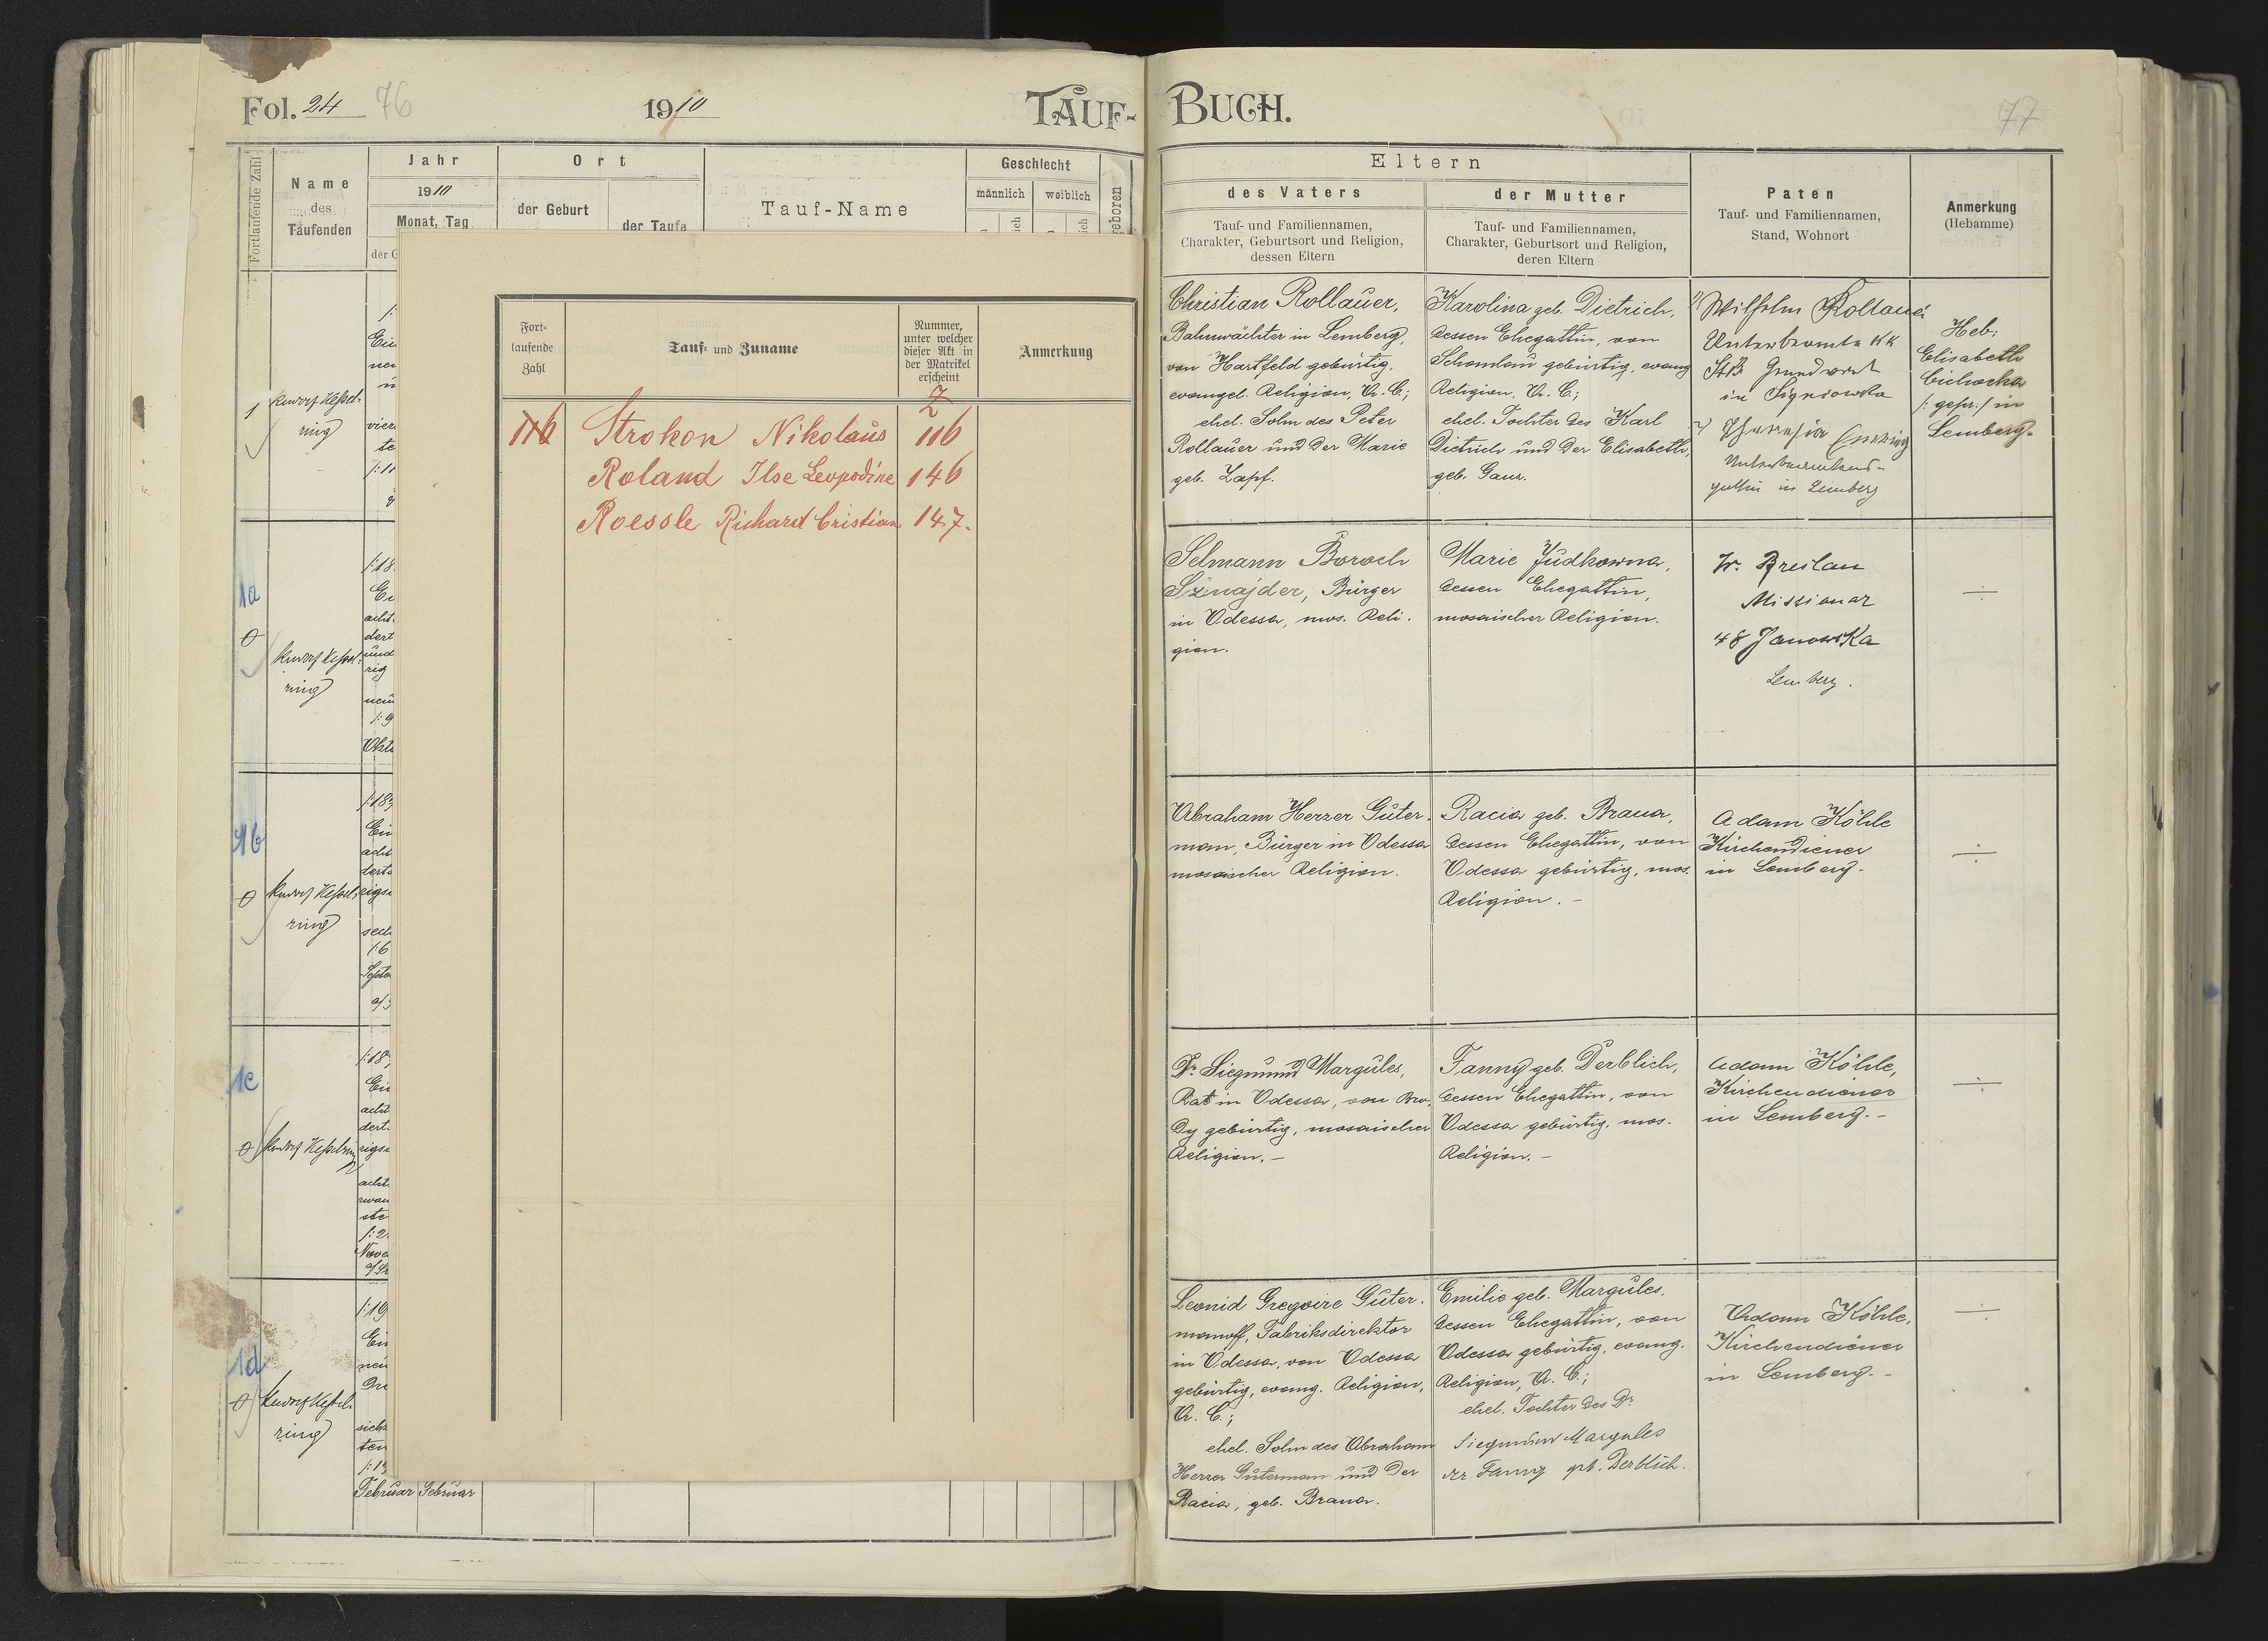 Fol. 24 76
1910
TAUF-
Fortlaufende Zahl
Name
des
Taufenden
Jahr
1910
Monat, Tag
der G
Ort
der Geburt
der Taufe
Tauf-Name
Geschlecht
männlich
weiblich
1
Rudolf Kessel-
ring
vier
te
1a
Rudolf Kessel-
ring
1b
Rudolf Kessel-
ring
1c
Rudolf Kesselring
1d
Rudolf Kessel-
ring
Februar Februar
Fort-
laufende
Zahl
Tauf- und Zuname
Nummer,
unter welcher
dieser Akt in
der Matrikel
erscheint
Anmerkung
116 Strokon Nikolaus 116
Roland Ilse Leopodine 146
Roessle Richard Cristian 147.
BUCH.
77
Eltern
des Vaters
Tauf- und Familiennamen,
Charakter, Geburtsort und Religion,
dessen Eltern
der Mutter
Tauf- und Familiennamen,
Charakter, Geburtsort und Religion,
deren Eltern
Paten
Tauf- und Familiennamen,
Stand, Wohnort
Anmerkung
(Hebamme)
Christian Rollauer,
Bahnwächter in Lemberg,
von Hartfeld gebürtig,
evangel. Religion, A. C.;
ehel. Sohn des Peter
Rollauer und der Marie
geb. Zapf.
Karolina geb. Dietrich,
dessen Ehegattin, von
Schomlau gebürtig, evang
Religion, A. C.;
ehel. Tochter des Karl
Dietrich und der Elisabeth,
geb. Gaur.
1) Wilhelm Rollauer
Unterbeamte KK
StB
in Signiowka
2) Theresia
in Lemberg
Heb:
Elisabeth
Cichocka
/: gepr.:/ in
Lemberg.
Selmann Boroch
Sznajder, Bürger
in Odessa, mos. Reli-
gion.
Marie Judkowna,
dessen Ehegattin,
mosaischer Religion.
W. Breslau
Missionar
48 Janowska
Lemberg.
Abraham Herzer Guter-
man, Bürger in Odessa
mosaischer Religion.
Racia geb. Brana,
dessen Ehegattin, von
Odessa gebürtig, mos.
Religion. -
Adam Köhle
Kirchendiener
in Lemberg.
Dr. Siegmund Margules,
Rat in Odessa, von Bro-
dy gebürtig, mosaischer
Religion. -
Fanny geb. Derblich,
dessen Ehegattin, von
Odessa gebürtig, mos.
Religion. -
Adam Köhle,
Kirchendiener
in Lemberg. -
Leonid Gregoire Guter-
manoff, Fabriksdirektor
in Odessa, von Odessa
gebürtig, evang. Religion,
A. C.;
ehel. Sohn des Abraham
Herzer Guterman und der
Racia, geb. Brana.
Emilie geb. Margules,
dessen Ehegattin, von
Odessa gebürtig, evang.
Religion, A. C.;
ehel. Tochter des Dr.
Siegmund Margules
der Fanny geb. Derblich.
Adam Köhle,
Kirchendiener
in Lemberg. -